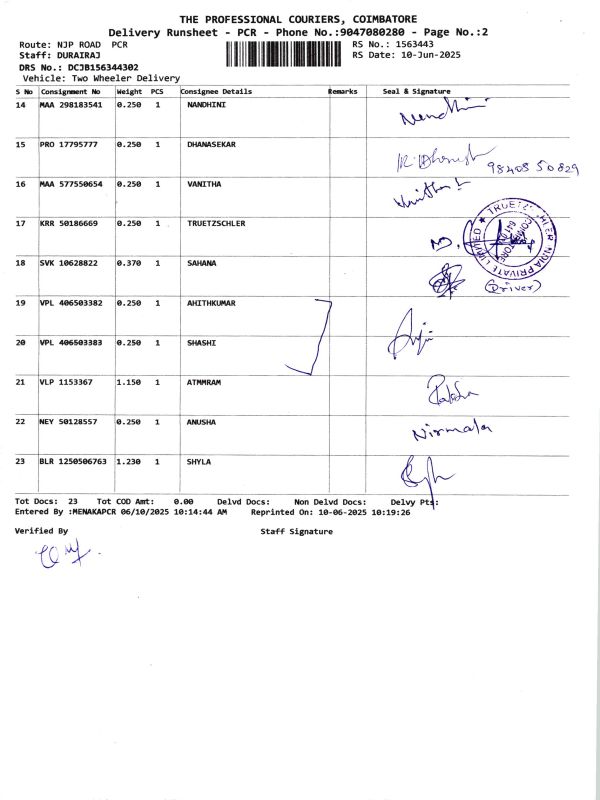 THE PROFESSIONAL COURIERS, COIMBATORE
Delivery Runsheet - PCR - Phone No.:9047080280 - Page No.:2
Route: NJP ROAD PCR
RS No.: 1563443
Staff: DURAIRAJ
RS Date: 10-Jun-2025
DRS No.: DCJB156344302
Vehicle: Two Wheeler Delivery
S No Consignment No Weight PCS Consignee Details Remarks Seal & Signature
14 MAA 298183541 0.250 1 NANDHINI Nandhini
15 PRO 17795777 0.250 1 DHANASEKAR 98408 50829
16 MAA 577550654 0.250 1 VANITHA Vanitha
17 KRR 50186669 0.250 1 TRUETZSCHLER
TRUETZSCHLER INDIA PRIVATE LIMITED
COIMBATORE
18 SVK 10628822 0.370 1 SAHANA (Driver)
19 VPL 406503382 0.250 1 AHITHKUMAR
20 VPL 406503383 0.250 1 SHASHI
21 VLP 1153367 1.150 1 ATMMRAM
22 NEY 50128557 0.250 1 ANUSHA Nirmala
23 BLR 1250506763 1.230 1 SHYLA
Tot Docs: 23 Tot COD Amt: 0.00 Delvd Docs: Non Delvd Docs: Delvy Pts:
Entered By :MENAKAPCR 06/10/2025 10:14:44 AM Reprinted On: 10-06-2025 10:19:26
Verified By Staff Signature